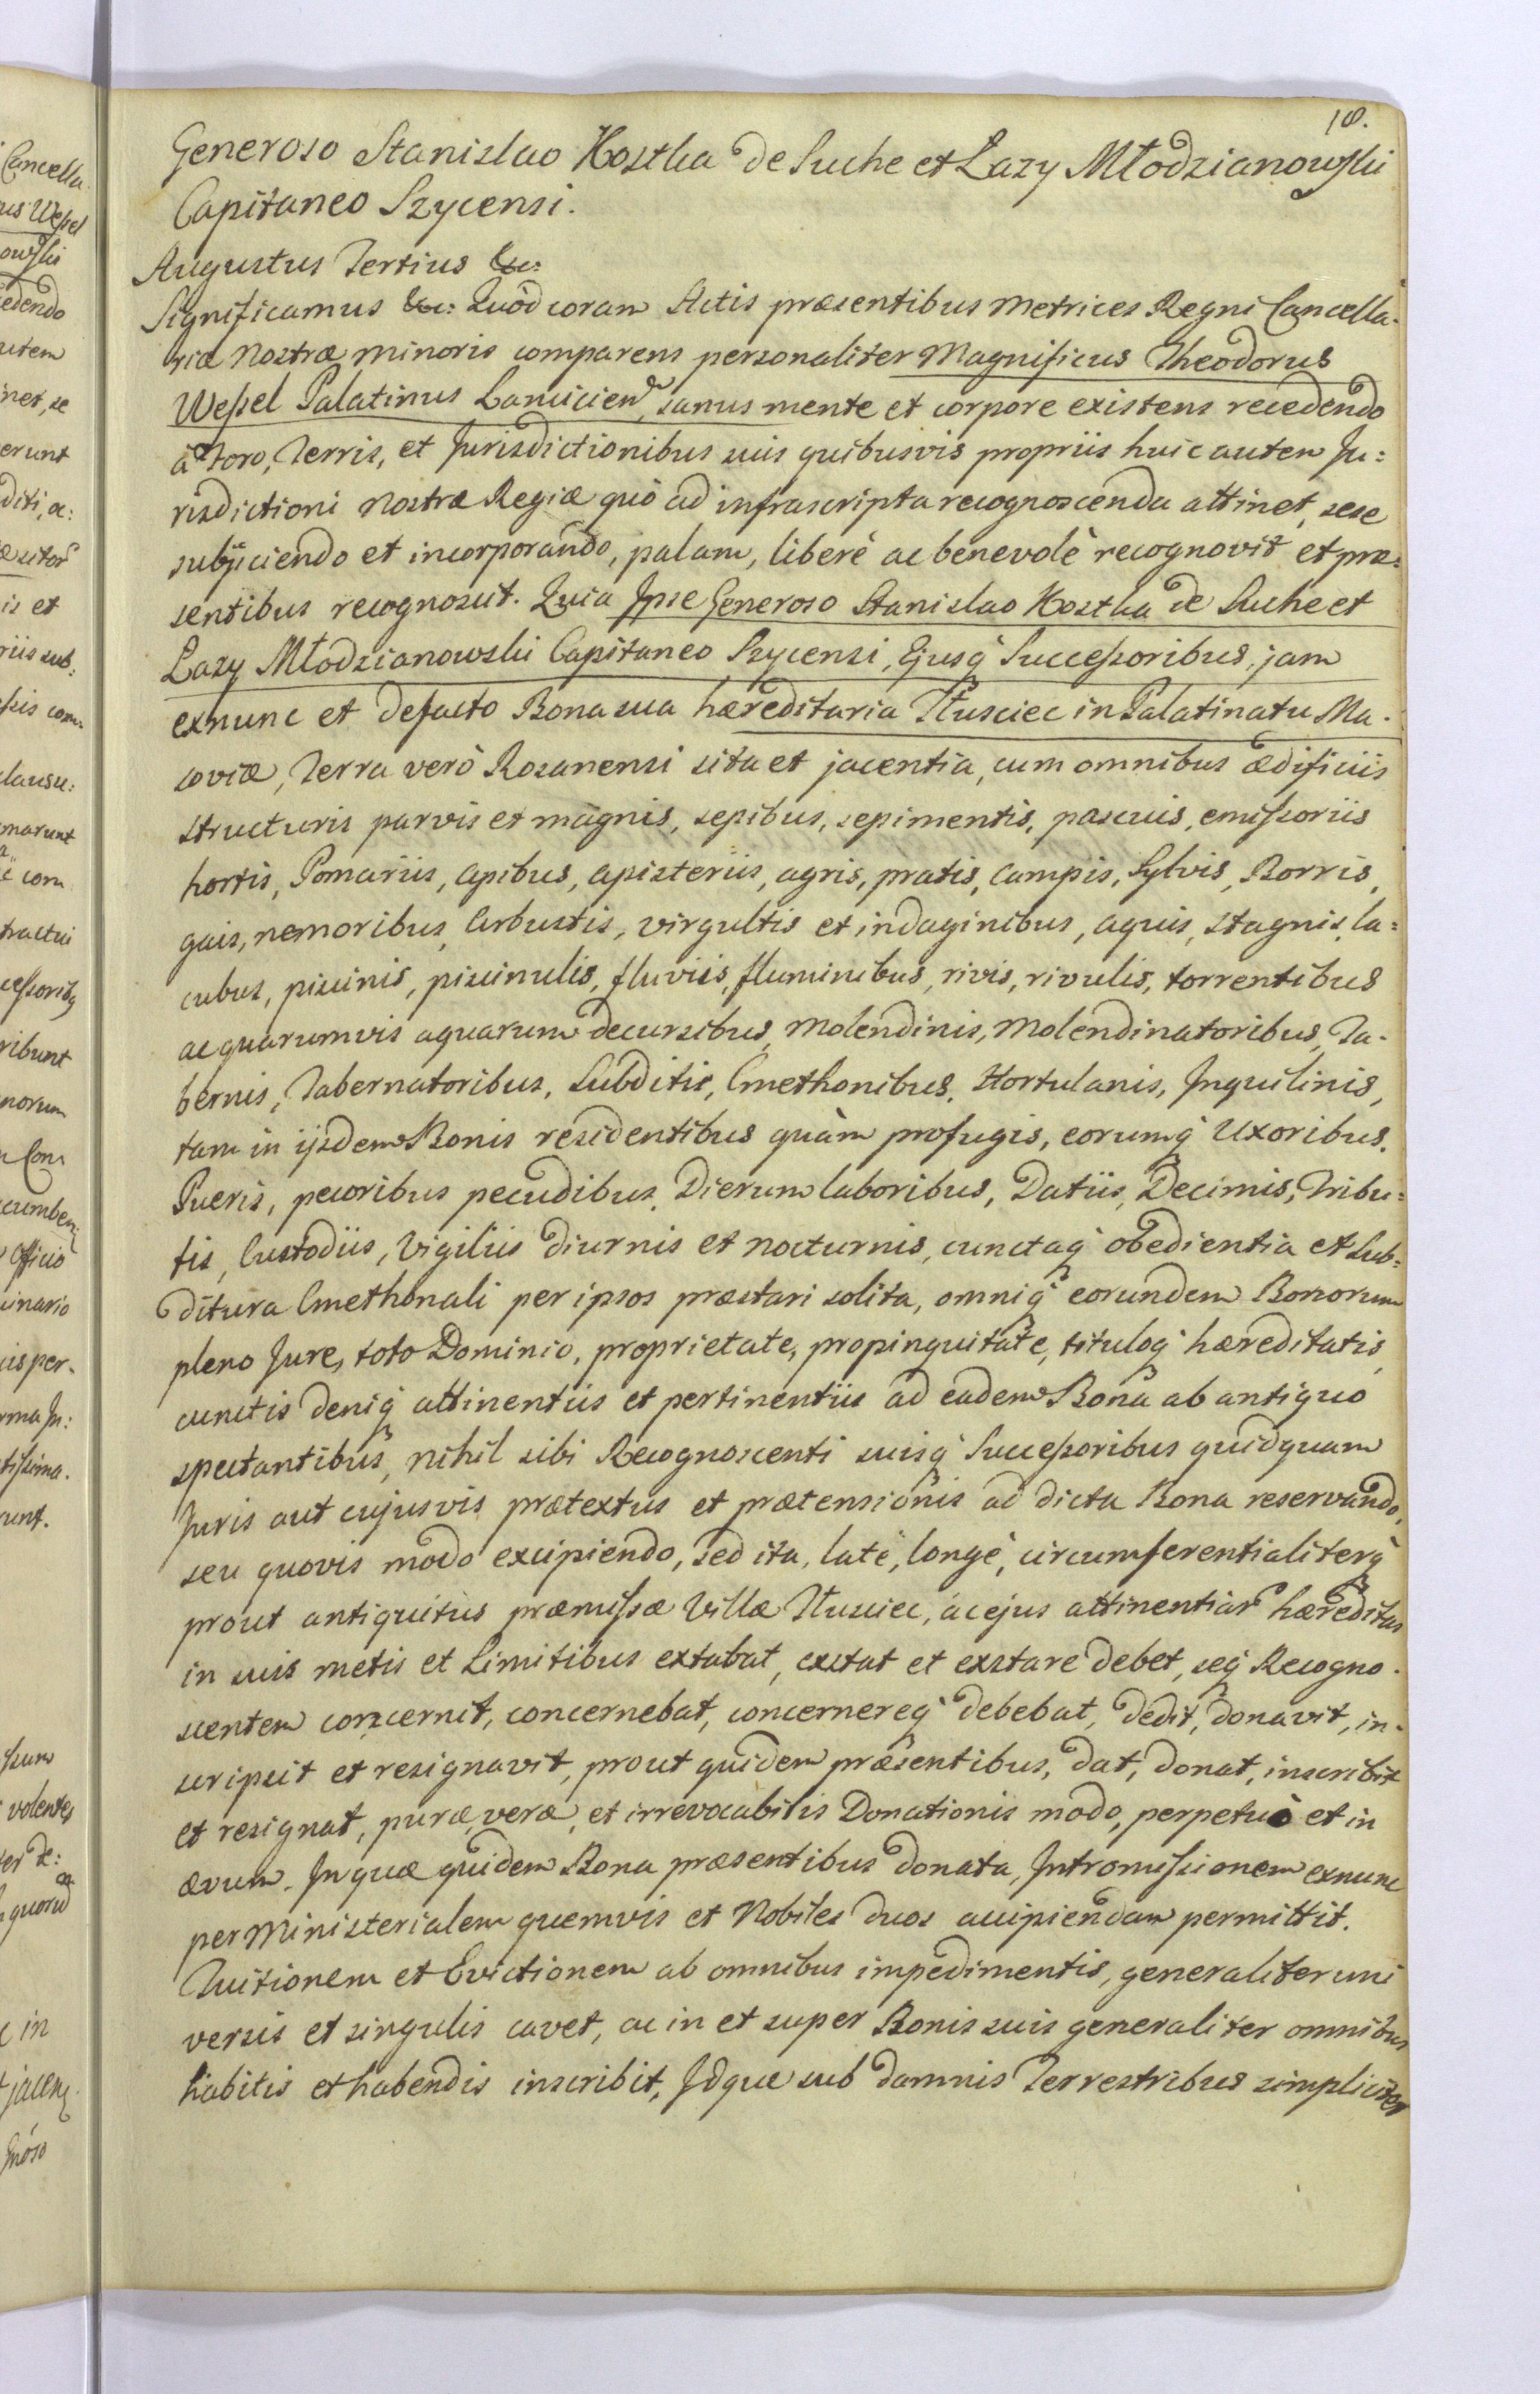 18.
Generoso Stanislao Kostka de Suche et Łazy Młodzianowski
Capitaneo Szycensi.
Augustus Tertius &c:
Significamus &c: Quòd coram Actis præsentibus Metrices Regni Cancella-
riæ Nostræ minoris comparens personaliter Magnificus Theodorus
Weſsel Palatinus Lanucien̄, sanus mente et corpore existens recedendo
à Foro, Terris, et Jurisdictionibus suis quibusvis propriis huic autem Ju:
risdictioni Nostræ Regiæ quò ad infrascripta recognoscenda attinet, sese
subjiciendo et incorporando, palam, liberè ac benevolè recognovit et præ:
sentibus recognoscit. Quia Ipse Generoso Stanislao Kostka de Suche et
Łazy Młodzianowski Capitaneo Szycensi, Ejusq́ Succeſsoribus, jam
exnunc et defacto Bona sua hæreditaria Tłusciec in Palatinatu Ma-
soviæ, Terra verò Rosanensi sita et jacentia, cum omnibus ædificiis
structuris parvis et magnis, sepibus, sepimentis, pascuis, emiſsoriis
hortis, Pomariis, apibus, apisteriis, agris, pratis, campis, Sylvis, Borris,
gais, nemoribus, Arbustis, virgultis et indaginibus, aquis, stagnis, la:
cubus, piscinis, piscinulis, fluviis, fluminibus, rivis, rivulis, torrentibus
ac quarumvis aquarum decursibus, Molendinis, Molendinatoribus, Ta-
bernis, Tabernatoribus, Subditis, Cmethonibus, Hortulanis, Inquilinis,
tam in ijsdem Bonis residentibus quàm profugis, eorumq́ Uxoribus,
Pueris, pecoribus pecudibus, Dierum laboribus, Datiis, Decimis, Tribu:
tis, Custodiis, Vigiliis diurnis et nocturnis, cunctaq́ obedientia et Sub:
ditura Cmethonali per ipsos præstari solita, omniq́ eorundem Bonorum
pleno Jure, toto Dominio, proprietate, propinquitate, tituloq́ hæreditatis,
cunctis deniq́ attinentiis et pertinentiis ad eadem Bona ab antiquo
spectantibus, nihil sibi Recognoscenti suisq́ Succeſsoribus quidquam
Juris aut cujusvis prætextus et prætensionis ad dicta Bona reservando,
seu quovis modo excipiendo, sed ita, latè, longè, circumferentialiterq́
prout antiquitus præmiſsæ Villæ Tłusciec, ac ejus attinentiar̄ hæreditas
in suis metis et Limitibus extabat, exstat et exstare debet, seq́ Recogno-
scentem concernit, concernebat, concernereq́ debebat, dedit, donavit, in-
scripsit et resignavit, prout quidem præsentibus, dat, donat, inscribit
et resignat, puræ, veræ, et irrevocabilis Donationis modo, perpetuò et in
ævum. In quæ quidem Bona præsentibus donata, Intromiſsionem exnunc
per Ministerialem quemvis et Nobiles duos accipiendam permittit.
Tuitionem et Evictionem ab omnibus impedimentis, generaliter uni
versis et singulis cavet, ac in et super Bonis suis generaliter omnibus
habitis et habendis inscribit, Idque sub damnis Terrestribus simpliciter